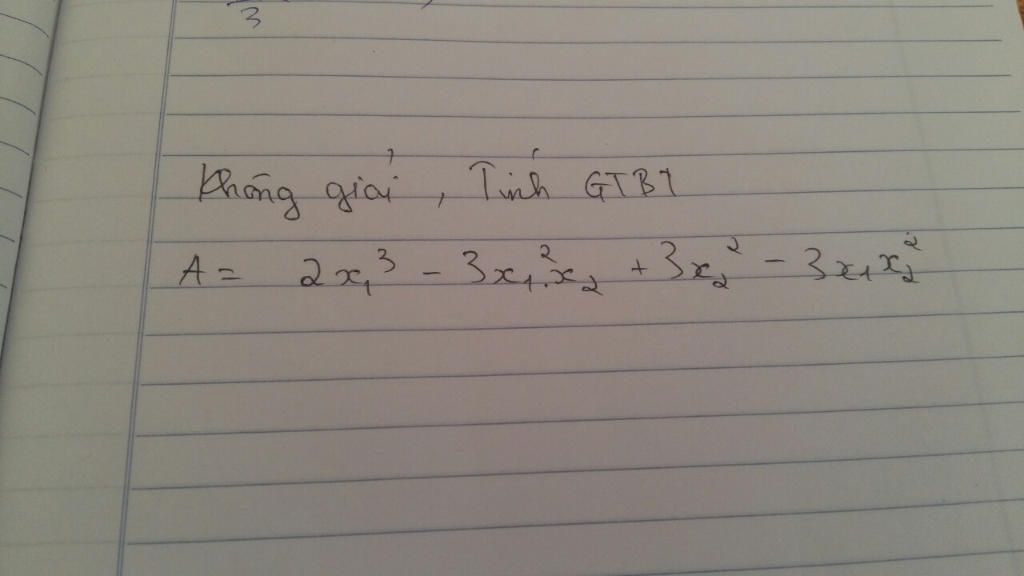 3
Không giải, Tính GTBT
A = 2x₁³ - 3x₁².x₂ + 3x₂² - 3x₁x₂²